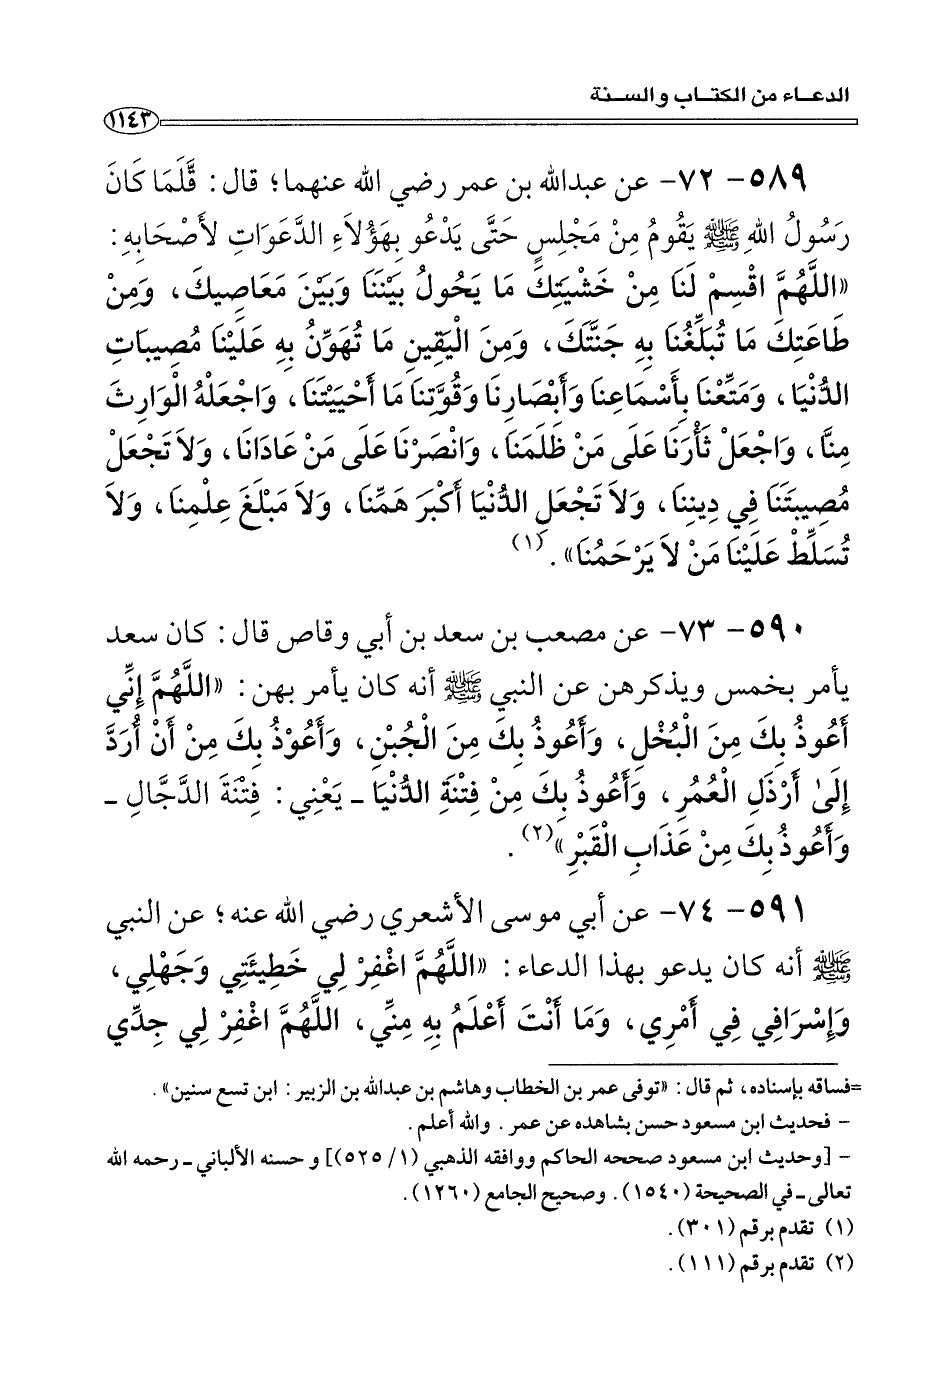 الدعـــاء من الكتـــاب والســـنة
١١٤٣
٥٨٩- ٧٢- عن عبدالله بن عمر رضي الله عنهما؛ قال: قَّلَمَا كَانَ
رَسُولُ اللهِ ﷺ يَقُومُ مِنْ مَجْلِسٍ حَتَّى يَدْعُو بِهَؤُلاَءِ الدَّعَوَاتِ لأَصْحَابِهِ:
«اللَّهُمَّ اقْسِمْ لَنَا مِنْ خَشْيَتِكَ مَا يَحُولُ بَيْنَنَا وَبَيْنَ مَعَاصِيكَ، وَمِنْ
طَاعَتِكَ مَا تُبَلِّغُنَا بِهِ جَنَّتَكَ، وَمِنَ الْيَقِينِ مَا تُهَوِّنُ بِهِ عَلَيْنَا مُصِيبَاتِ
الدُّنْيَا، وَمَتِّعْنَا بِأَسْمَاعِنَا وَأَبْصَارِنَا وَقُوَّتِنَا مَا أَحْيَيْتَنَا، وَاجْعَلْهُ الْوَارِثَ
مِنَّا، وَاجْعَلْ ثَأْرَنَا عَلَى مَنْ ظَلَمَنَا، وَانْصُرْنَا عَلَى مَنْ عَادَانَا، وَلاَ تَجْعَلْ
مُصِيبَتَنَا فِي دِينِنَا، وَلاَ تَجْعَلِ الدُّنْيَا أَكْبَرَ هَمِّنَا، وَلاَ مَبْلَغَ عِلْمِنَا، وَلاَ
تُسَلِّطْ عَلَيْنَا مَنْ لاَ يَرْحَمُنَا». (١)
٥٩٠- ٧٣- عن مصعب بن سعد بن أبي وقاص قال: كان سعد
يأمر بخمس ويذكرهن عن النبي ﷺ أنه كان يأمر بهن: «اللَّهُمَّ إِنِّي
أَعُوذُ بِكَ مِنَ الْبُخْلِ، وَأَعُوذُ بِكَ مِنَ الْجُبْنِ، وَأَعُوْذُ بِكَ مِنْ أَنْ أُرَدَّ
إِلَىٰ أَرْذَلِ الْعُمُرِ، وَأَعُوذُ بِكَ مِنْ فِتْنَةِ الدُّنْيَا ـ يَعْنِي: فِتْنَةَ الدَّجَّالِ ـ
وَأَعُوذُ بِكَ مِنْ عَذَابِ الْقَبْرِ»(٢).
٥٩١- ٧٤- عن أبي موسى الأشعري رضي الله عنه؛ عن النبي
ﷺ أنه كان يدعو بهذا الدعاء: «اللَّهُمَّ اغْفِرْ لِي خَطِيئَتِي وَجَهْلِي،
وَإِسْرَافِي فِي أَمْرِي، وَمَا أَنْتَ أَعْلَمُ بِهِ مِنِّي، اللَّهُمَّ اغْفِرْ لِي جِدِّي
=فساقه بإسناده، ثم قال: «توفى عمر بن الخطاب وهاشم بن عبدالله بن الزبير: ابن تسع سنين».
- فحديث ابن مسعود حسن بشاهده عن عمر. والله أعلم.
- [وحديث ابن مسعود صححه الحاكم ووافقه الذهبي (١/ ٥٢٥)] و حسنه الألباني ـ رحمه الله
تعالى ـ في الصحيحة (١٥٤٠). وصحيح الجامع (١٢٦٠).
(١) تقدم برقم (٣٠١).
(٢) تقدم برقم (١١١).